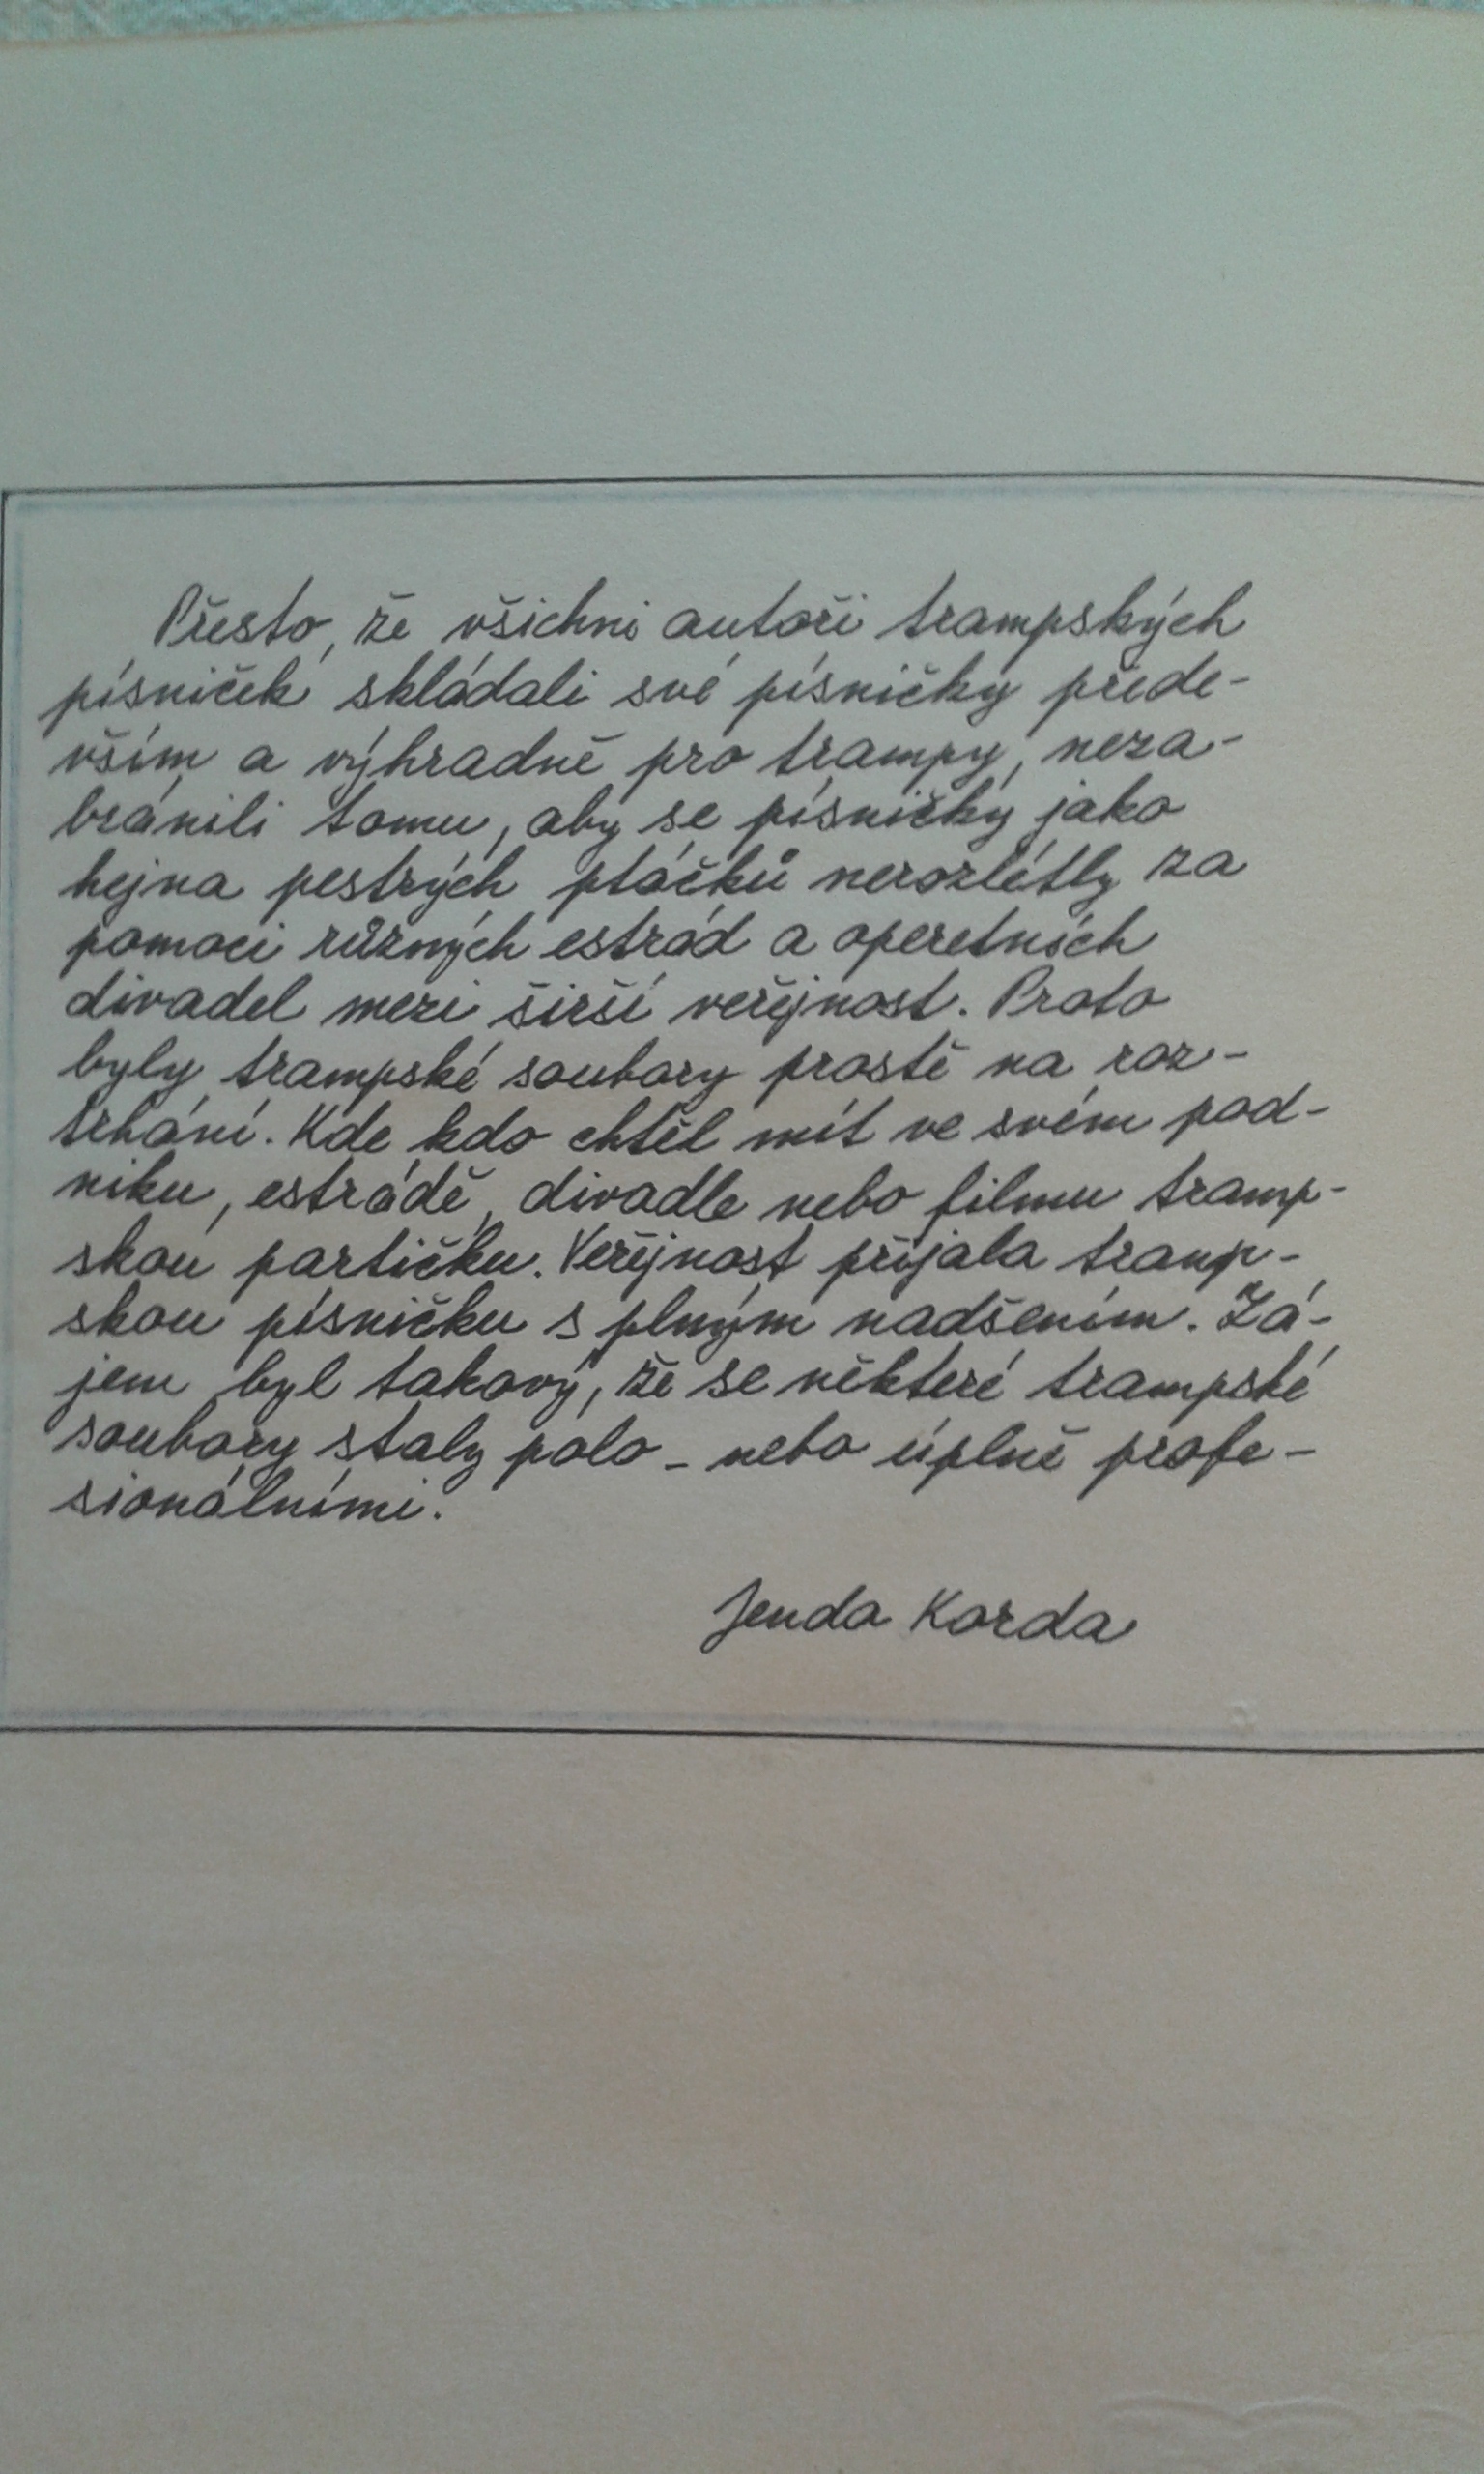 Přesto, že všichni autoři trampských
písniček skládali své písničky přede-
vším a výhradně pro trampy, neza-
bránili tomu, aby se písničky jako
hejna pestrých ptáčků nerozlétly za
pomoci různých estrád a operetních
divadel mezi širší veřejnost. Proto
byly trampské soubory prostě na roz-
trhání. Kde kdo chtěl mít ve svém pod-
niku, estrádě, divadle nebo filmu tramp-
skou partičku. Veřejnost přijala tramp-
skou písničku s plným nadšením. Zá-
jem byl takový, že se některé trampské
soubory staly polo - nebo úplně profe-
sionálními.
Jenda Korda